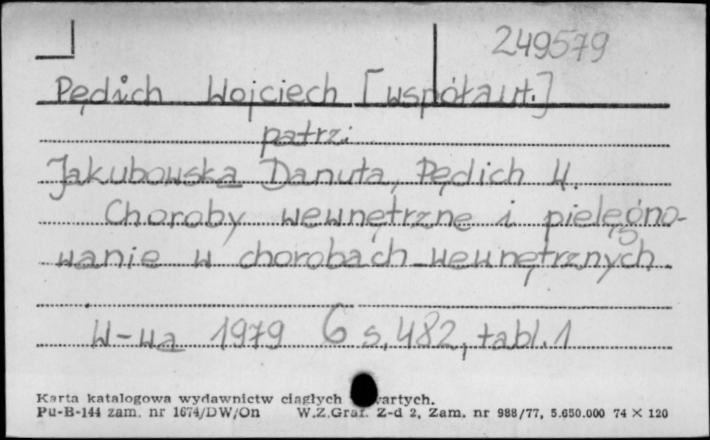 249579
Pędich Wojciech [współaut.]
patrz:
Jakubowska Danuta, Pędich W.
Choroby wewnętrzne i pielęgno-
wanie w chorobach wewnętrznych.
W-wa 1979 6 s. 482, tabl. 1
Karta katalogowa wydawnictw ciągłych
Pu-B-144 zam. nr 1674/DW/On W.Z.Graf. Z-d 2, Zam. nr 988/77, 5.650.000 74 × 120